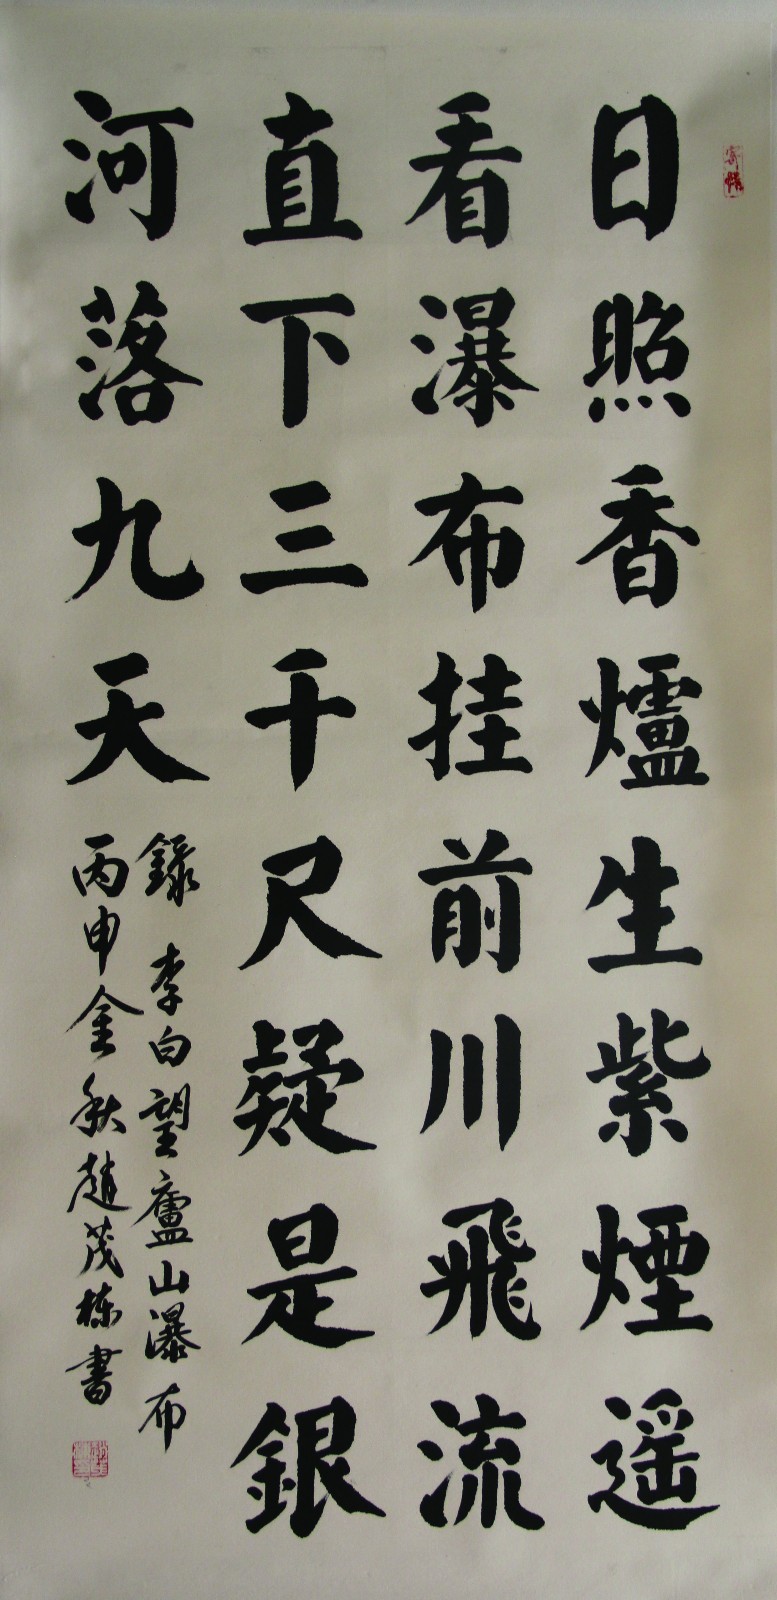 日照香爐生紫煙遥
看瀑布挂前川飛流
直下三千尺疑是銀
河落九天
錄李白望廬山瀑布
丙申金秋趙茂栋書